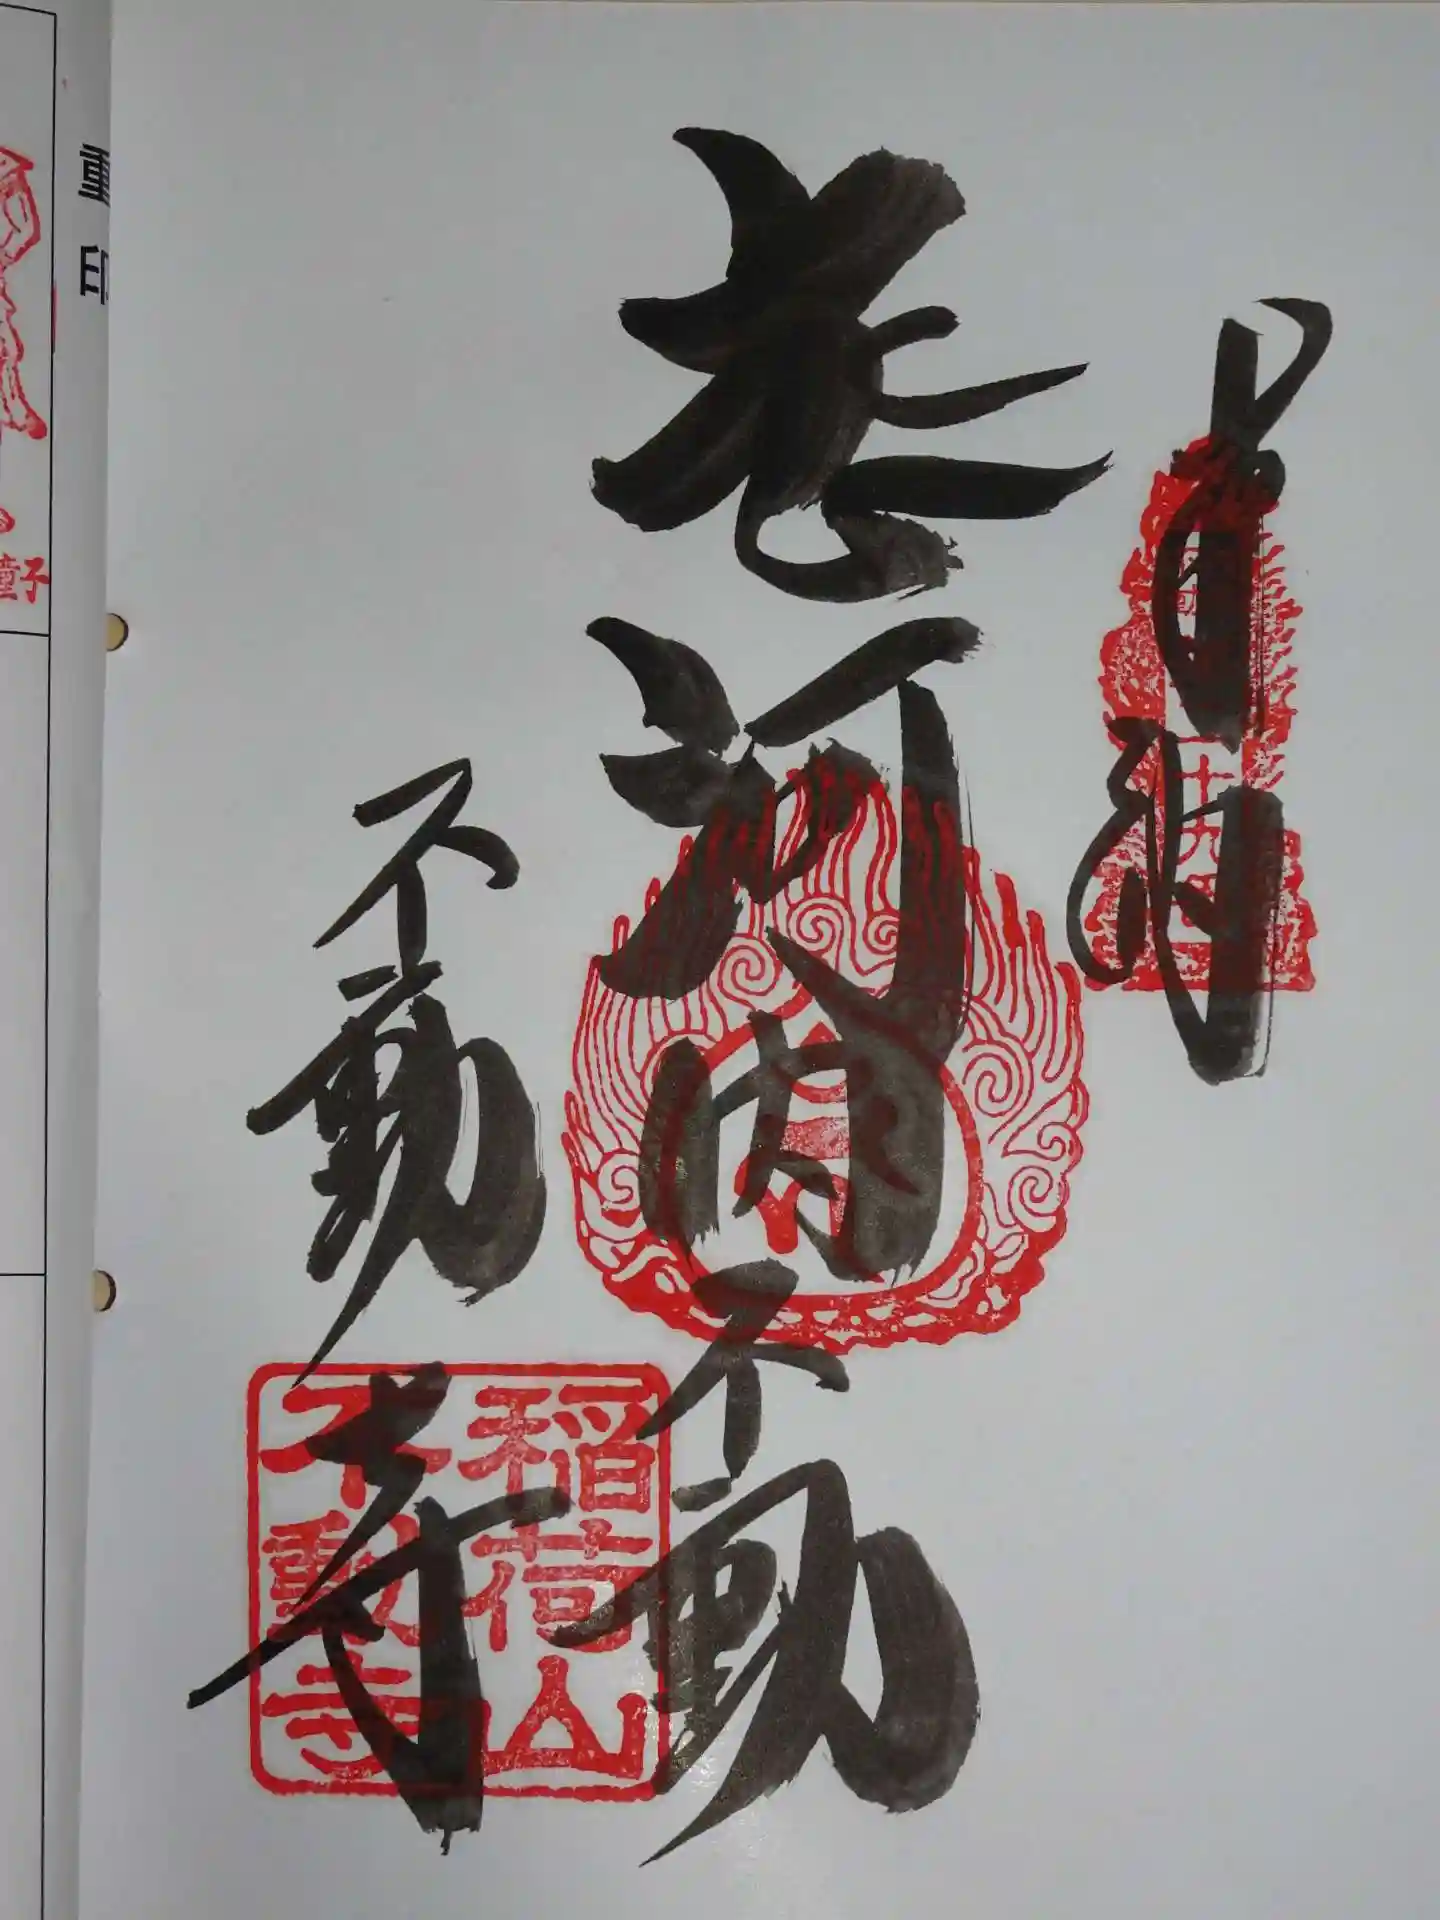 奉納
十九
河内不動
不動寺
稲荷山
不動寺
印
童子